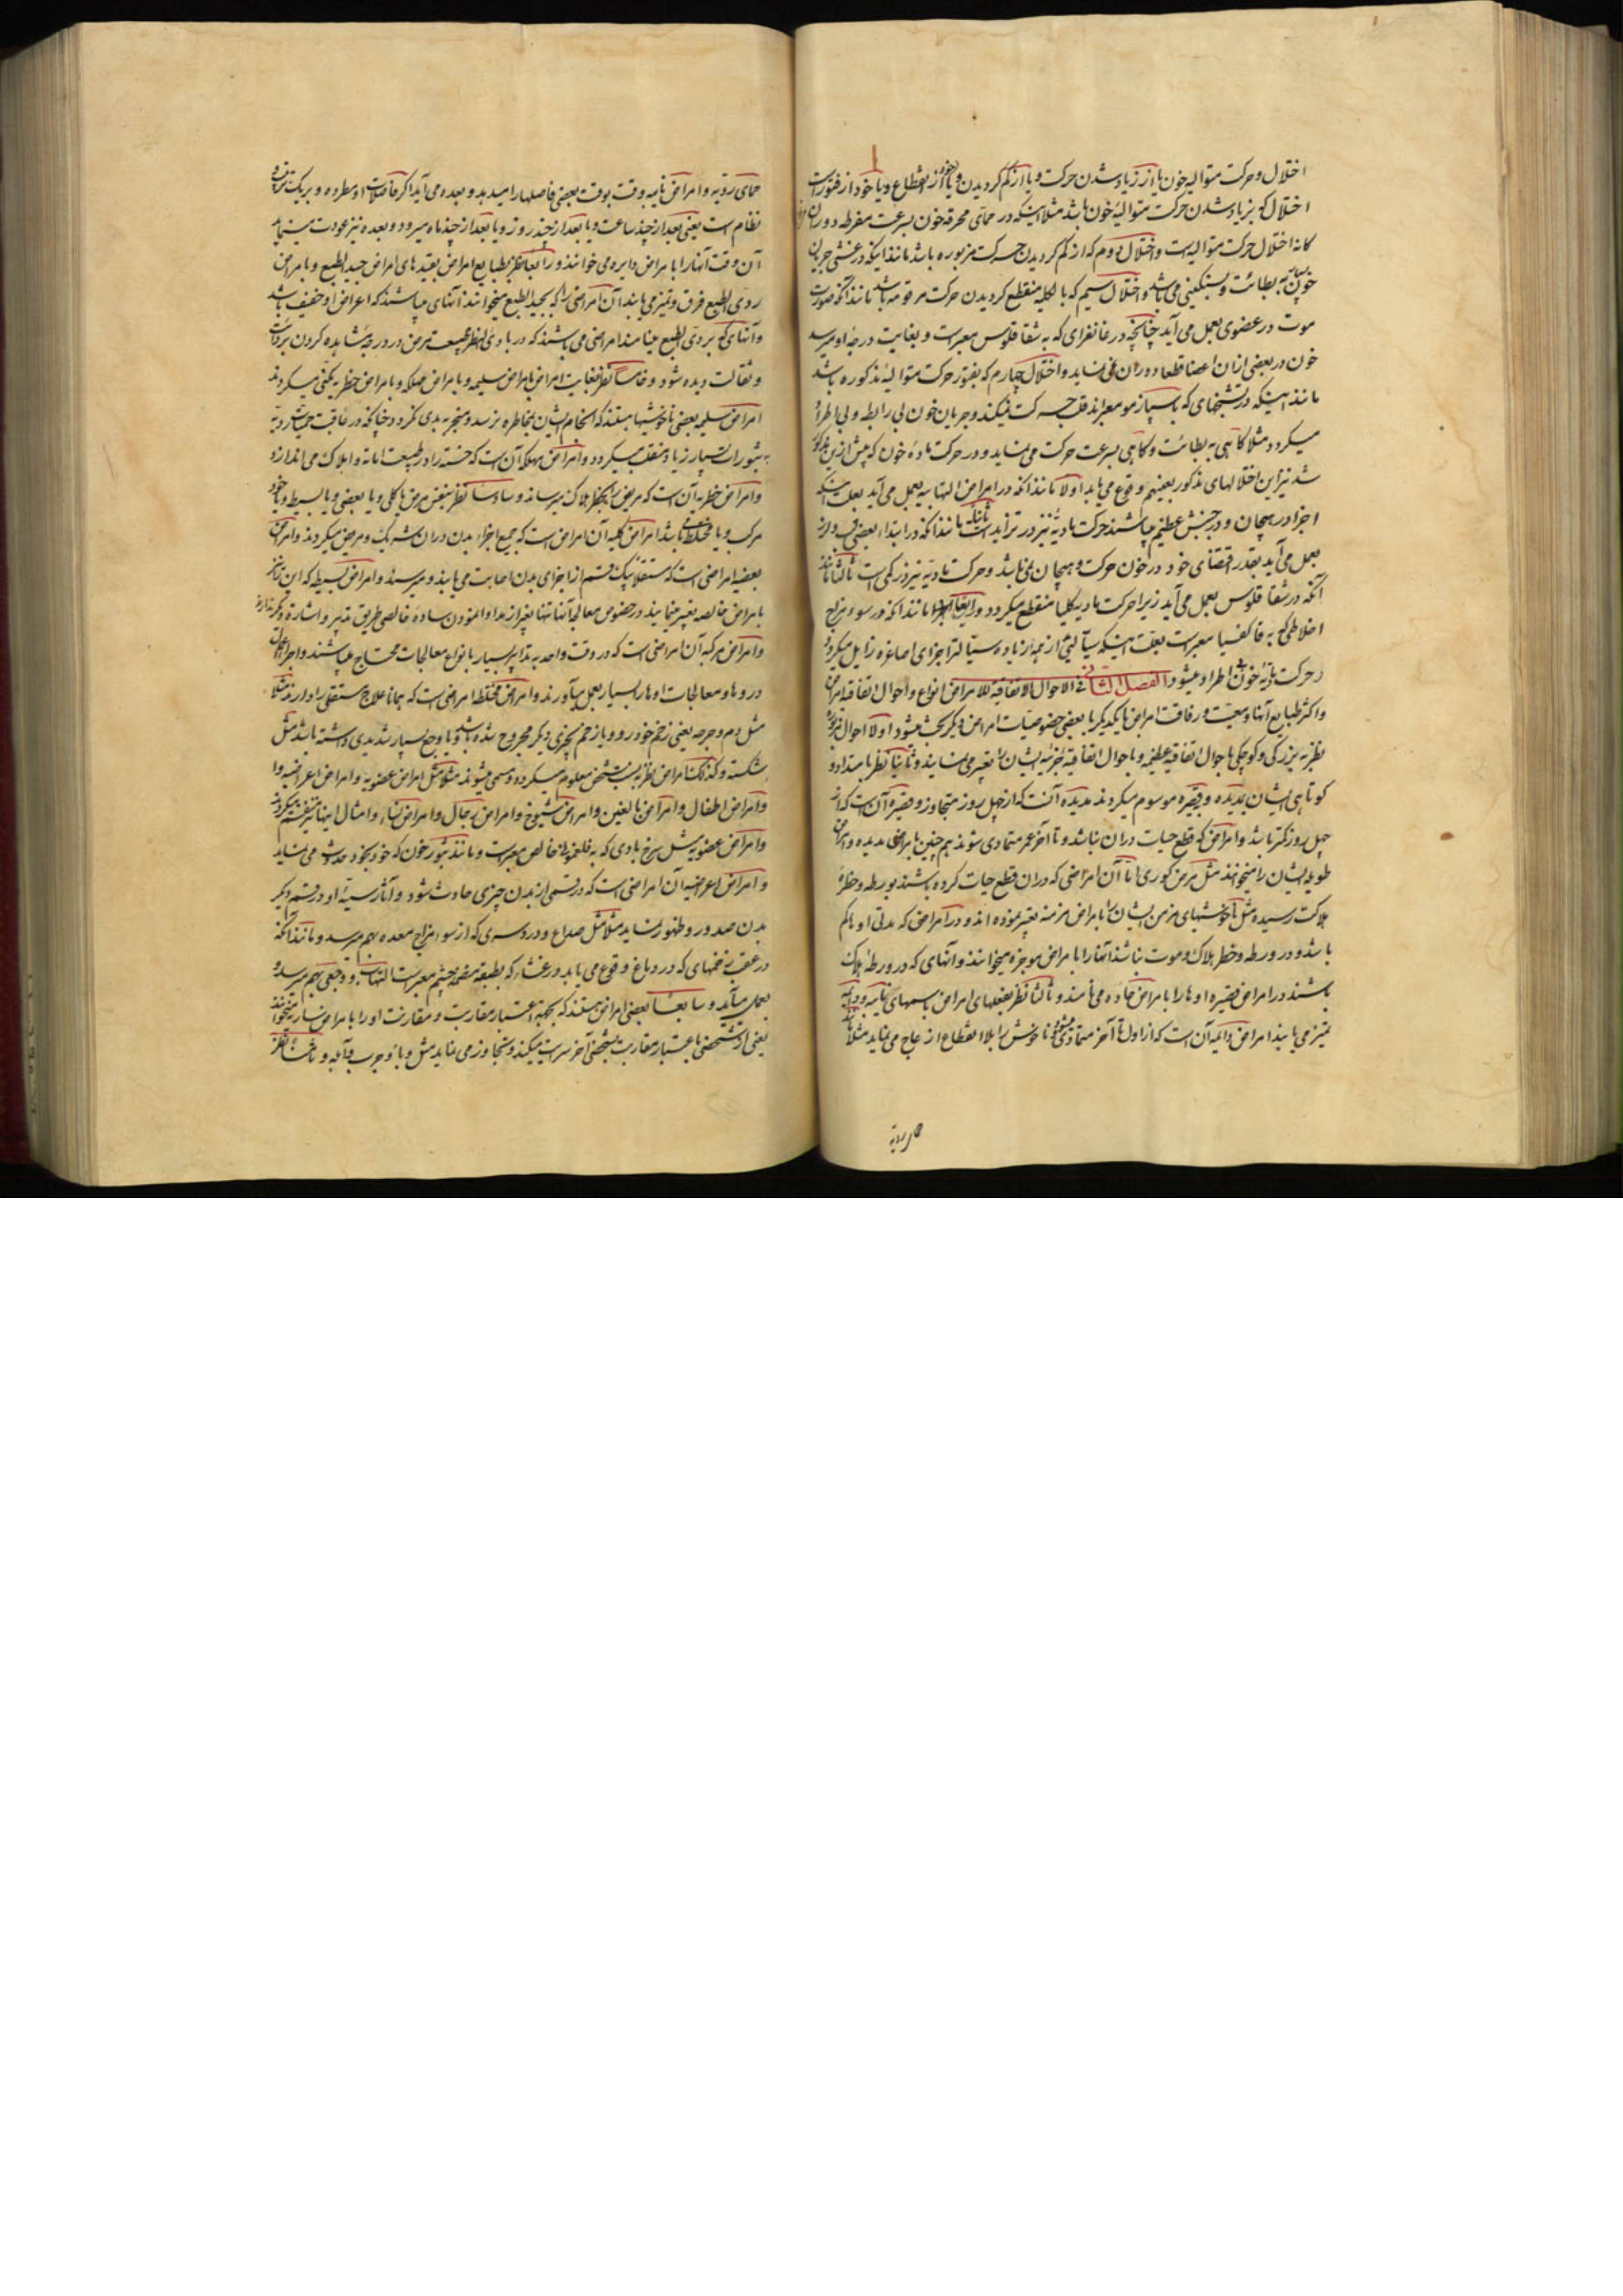 اختلال و حرکت متوالیه خون یا از زیاد شدن حرکت و یا از کم کردیدن و یا خود از انقطاع و یا خود از فتور است
اختلال که بزیاد شدن حرکت متوالیهٔ خون باشد مثلا اینکه در حمای محرقه خون بسرعت مفرطه دوران
کانه اختلال حرکت متوالیه است و اختلال دوم که از کم کردیدن حرکت مزبوره باشد مانند اینکه در غشی جریان
خون به بطائت و سنکینی می باشد و اختلال سیم که بالکلیه منقطع کردیدن حرکت مرقومه باشد مانند آنکه صورت
موت در عضوی بعمل می آید چنانچه در غانغرای که به شقاقلوس معبر است و بغایت درجهٔ او میرسد
خون در بعضی ازان اعضا قطعا دوران نمی نماید و اختلال چهارم که بفتور حرکت متوالیهٔ مذکوره باشد
مانند اینکه در تشنجهای که باسپازمو معبراند قلب حرکت نمیکند و جریان خون بی رابطه و بی اطراد
میکردد مثلا کاهی به بطائت و کاهی بسرعت حرکت می نماید و در حرکت مادهٔ خون که پیش ازین مذکور
شد نیز این اختلالهای مذکور بعینهم وقوع می یابد اولا مانند آنکه در امراض التهابیه بعمل می آید بعلت اینکه
اجزا در هیجان و در جنبش عظیم میباشند حرکت مادیه نیز در تزاید است ثانیا مانند آنکه در ابتداء بعضی
بعمل می آید بقدر اقتضای خود در خون حرکت و هیجان نمی باشد و حرکت مادیه نیز در کمی است ثالثا مانند
آنکه در شقاقلوس بعمل می آید زیرا حرکت مادیه کلیا منقطع میکردد و رابعا مانند آنکه در سوء مزاج
اخلاطی که به قاکفسیا معبر است بعلت اینکه سیالیتی از همه زیاده سیتالتر اجزای اصاغره زایل میکردد
در حرکت مادیهٔ خون اطراد میشود الفصل الثانی فی الاحوال الاتفاقیة للامراض انواع و احوال اتفاقیه امراض
و اکثر طبایع آنها و معیت و رفاقت امراض با یکدیکر با بعضی خصوصیات امراض دیکر بحث میشود اولا احوال
نظر به بزرکی و کوچکی باحوال اتفاقیه عظیمه و باحوال اتفاقیه جزئیه ایشان را تعبیر می نمایند و ثانیا نظر بامتداد و
کوتاهی ایشان بمدیده و قصیره موسوم میکردند مدیده آنست که از چهل روز متجاوز و قصیره آن است که از
چهل روز کمتر باشد و امراض که قطع حیات دران نباشد و تا آخر عمر متمادی شوند هم چنین بامراض مدیده و امراض
طویله ایشان را میخوانند مثل مرض کوری اما آن امراضی که دران قطع حیات کرده باشند بورطه و خطرهٔ
هلاکت رسیده مثل ناخوشیهای مزمن ایشان را بامراض مزمنه تعبیر نموده اند و در امراض که مدتی او هاکم
باشد و در ورطه و خطر هلاک و موت نباشد آنها را بامراض موجزه میخوانند و آنهای که در ورطهٔ هلاک
باشند در امراض قصیره اوها را بامراض حاده می نامند و ثالثا نظر بفعلهای امراض باسمهای نایبه و دایمه
تمیز می یابند امراض دایمه آن است که از اول تا آخر متمادی ناخوش را بلا انقطاع ازعاج می نماید مثلا
حمای ردیه
حمای ردیه و امراض نایبه وقت بوقت بعضی فاصلها را میدهد و بعده می آید اکر فاصلات او مطرده و بریک قرار
نظام است یعنی بعد از چند ساعت و یا بعد از چند روز و یا بعد از چند ماه میرود و بعده نیز عودت مینماید
آن وقت آنها را بامراض دایره می خوانند و رابعا نظر بطبایع امراض بقیدهای امراض جید الطبع و بامراض
ردی الطبع فرق و تمیز می یابند آن امراضی را که بجید الطبع میخوانند آنهای میباشند که اعراض او خفیف باشد
و آنهای که بردی الطبع مینامند امراضی می باشند که در بادی النظر طبیعت مرض در درجه مشاهده کردن بردائت
و ثقالت دیده شود و خامسا نظر بغایت امراض بامراض سلیمه و بامراض مهلکه و بامراض خطریه یکنی میکردند
امراض سلیمه بعضی ناخوشیها هستند که انجام ایشان بمخاطره نرسد و منجر به بدی نکردد چنانکه در عاقبت حمیات ردیه
به بثورات بسیار زیاد منقلب میکردد و امراض مهلکه آن است که خسته را در طبیعت اماته و اهلاک می اندازد
و امراض خطریه آن است که مریض را بخطر هلاک میرساند و سادسا نظر بنفس مرض یا کلی و یا بعضی و یا بسیط و یا خود
مرکب و یا مختلط باشد امراض کلیه آن امراض است که جمیع اجزاء بدن دران مشترک و مریض میکردند و امراض
بعضیه امراضی است که مستقلا یک قسم از اجزای بدن اصابت می یابند و میرسند و امراض بسیطه که این را نیز
بامراض خالصه تعبیر مینمایند در خصوص معالجهٔ آنها تنها بغیر از مداوا نمودن ساده خالصی طریق تدبیر و اشارهٔ دیکر ندارد
و امراض مرکبه آن امراضی است که در وقت واحد به تدابیر بسیار بانواع معالجات محتاج میباشند و اجراء
دردها و معالجات اوها را بسیار بعمل میآورند و امراض مختلطه امراضی است که همانا علاج مستقلی را دارند مثلا
مثل دم و جرحه یعنی زخم خود رو و یا زخم بچیزی دیکر مجروح شده باشد و یا وجع بسیار شدیدی داشته باشد مثل
شکسته و کذلک امراض نظر به مشخص معلوم میکردد و مسمی میشوند مثلا مثل امراض عضویه و امراض اعراضیه و
و امراض اطفال و امراض بالغین و امراض شیوخ و امراض رجال و امراض نساء و امثال اینها نیز منقسم میکردند
و امراض عضویه مثل سرخ بادی که به فلغمونی خالص معبر است و مانند بثور خون که خود بخود حدوث می نماید
و امراض اعراضیه آن امراضی است که در قسمی از بدن چیزی حادث شود و آثار سیئهٔ او در قسم دیکر
بدن صدور و ظهور نماید مثلا مثل صداع و درد سری که از سوء مزاج معده بهم میرسد و مانند آنکه
در عقب زخمهای که در دباغ وقوع می یابد در غشاء که بطبقه ملتحمه چشم معبر است التهاب و وجعی بهم میرسد و
بعمل میآید و سابعا بعضی امراض هستند که بجهة اعتبار مقاربت و مقارنت او را بامراض ساریه میخوانند
یعنی از شخصی باعتبار مقاربت بشخصی آخر سرایت میکند و تجاوز می نماید مثل وباء و جرب و آبله و ثامنا نظر